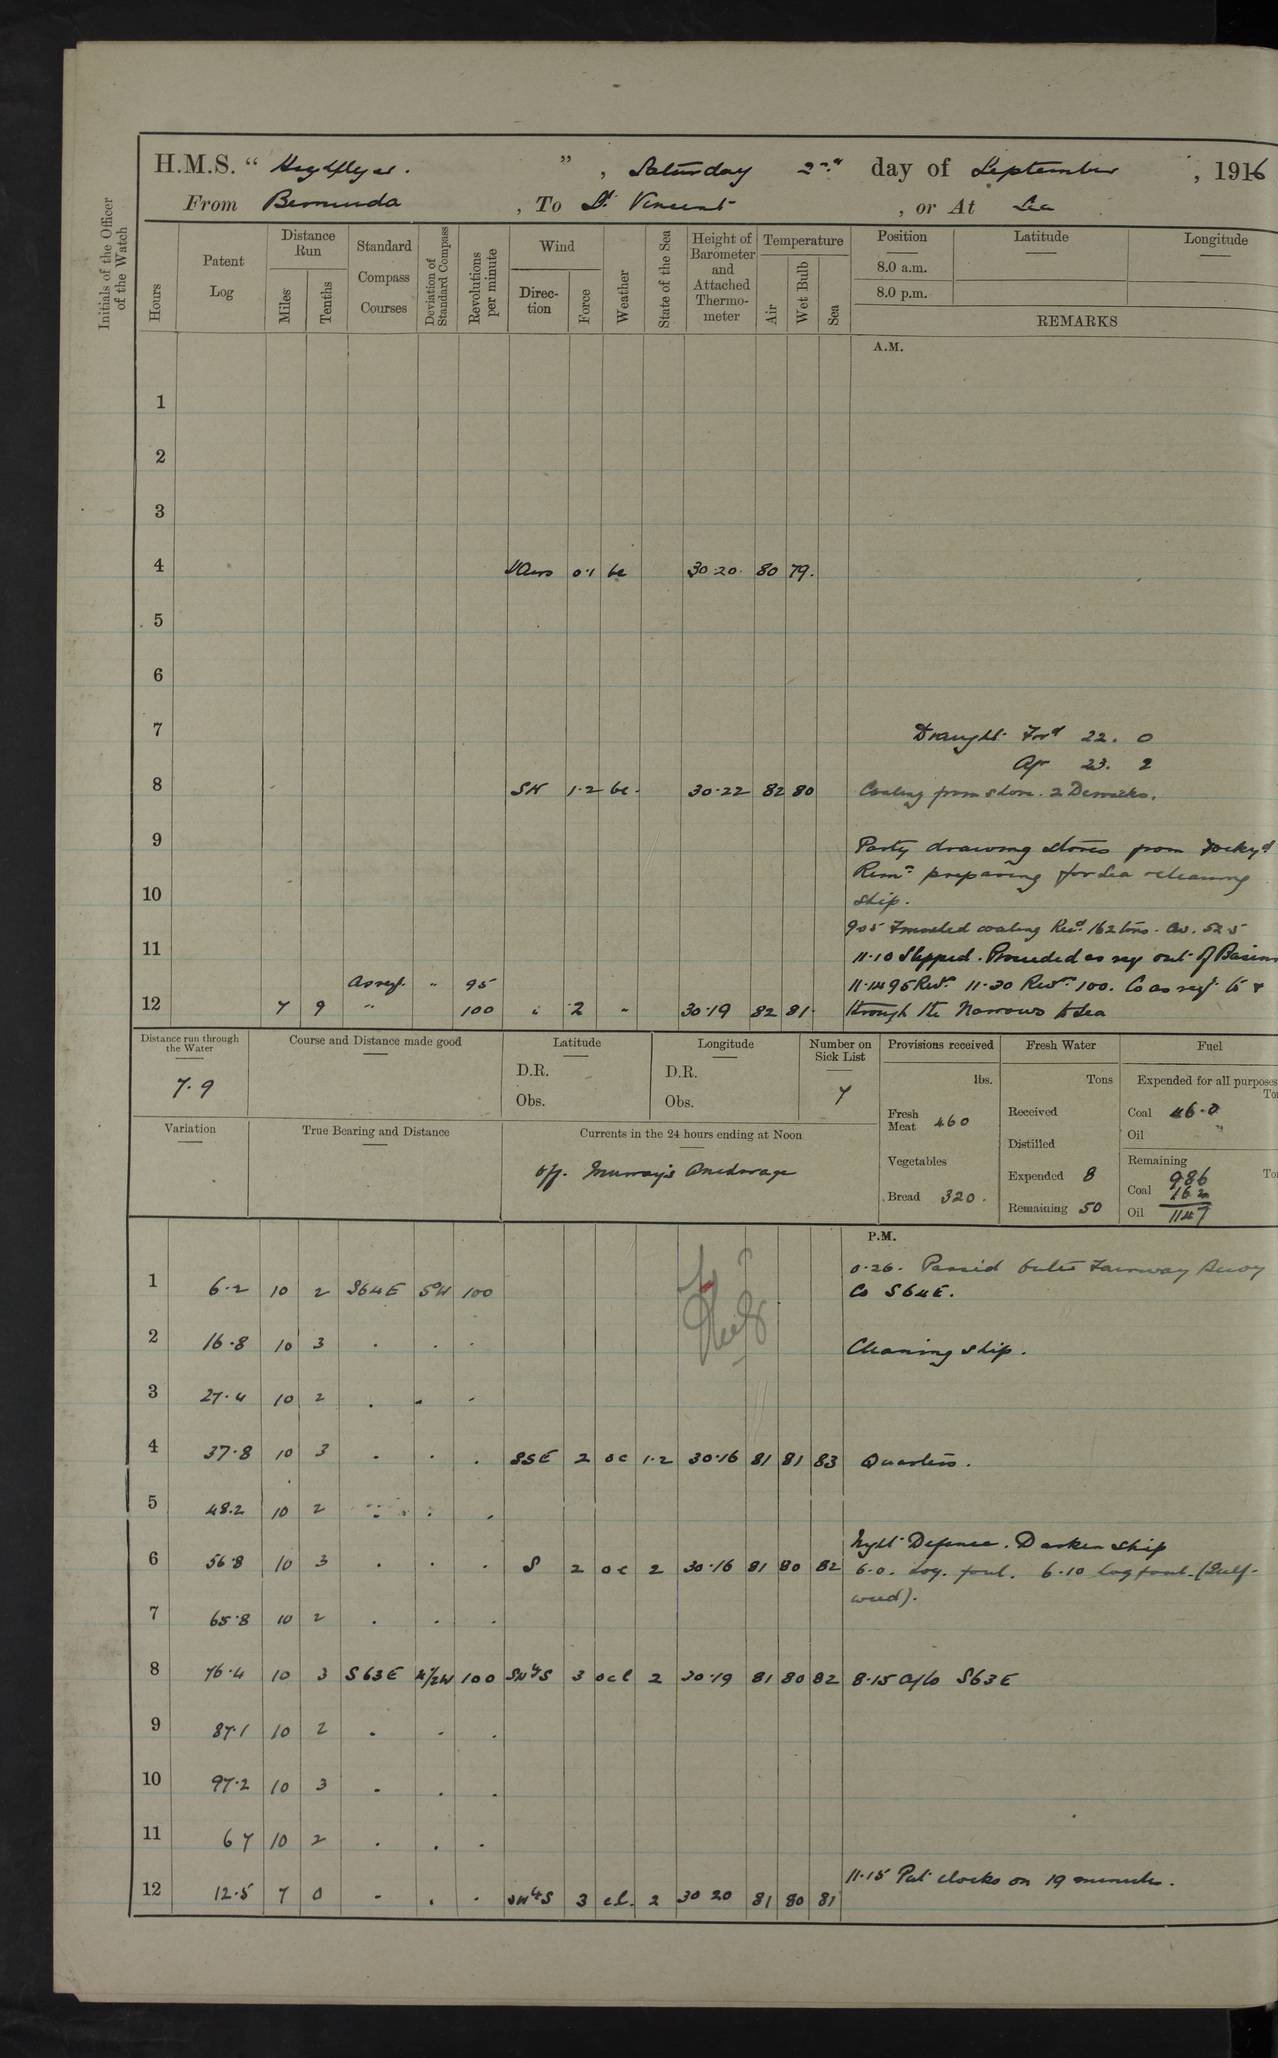 H.M.S. " Highflyer. " , Saturday 2nd day of September , 1916
From Bermuda , To St. Vincent , or At Sea
Initials of the Officer of the Watch
Hours
Patent Log
Distance Run
Miles
Tenths
Standard Compass Courses
Deviation of Standard Compass
Revolutions per minute
Wind
Direction
Force
Weather
State of the Sea
Height of Barometer and Attached Thermometer
Temperature
Air
Wet Bulb
Sea
Position
8.0 a.m.
8.0 p.m.
Latitude
Longitude
REMARKS
A.M.
1
2
3
4 Airs 0·1 bc 30·20 80 79.
5
6
7 Draught Ford 22. 0
Aft 23. 2
8 SW 1·2 bc. 30·22 82 80 Coaling from shore. 2 Derricks.
9 Party drawing stores from Dockyd
Remr preparing for Sea & cleaning
10 ship.
9 05 Finished coaling Recd. 162 tons.
11 11·10 Slipped. Proceeded as reqt out of Basin
As reqt. " 95 11·14 95 Revs. 11·30 Revs. 100. Co as reqt to &
12 7 9 " 100 " 2 " 30·19 82 81. through the Narrows to Sea
Distance run through the Water
7·9
Course and Distance made good
Latitude
D.R.
Obs.
Longitude
D.R.
Obs.
Number on Sick List
7
Provisions received
lbs.
Fresh Meat 460
Vegetables
Bread 320.
Fresh Water
Tons
Received
Distilled
Expended 8
Remaining 50
Fuel
Expended for all purposes
Coal 46·0
Oil "
Remaining
Coal 986
162
Oil 1147
Variation
True Bearing and Distance
Currents in the 24 hours ending at Noon
Off. Murray's Anchorage
P.M.
0·26. Passed Outer Fairway Buoy
1 6·2 10 2 S64E 5W 100 Co S64E.
2 16·8 10 3 . . . Cleaning ship.
3 27·4 10 2 . . .
4 37·8 10 3 . . . SSE 2 oc 1·2 30·16 81 81 83 Quarters.
5 48.2 10 2 . . .
Night Defence. Darken Ship
6 56·8 10 3 . . . S 2 oc 2 30·16 81 80 82 6·0. Log. foul. 6·10 log foul. (Gulf-
weed).
7 65·8 10 2 . . .
8 76·4 10 3 S63E 4½W 100 SWbS 3 ocl 2 30·19 81 80 82 8·15 a/co S63E
9 87·1 10 2 . . .
10 97·2 10 3 . . .
11 6 7 10 2 . . .
11·15 Put clocks on 19 minutes.
12 12·5 7 0 . . . SWbS 3 cl. 2 30 20 81 80 81